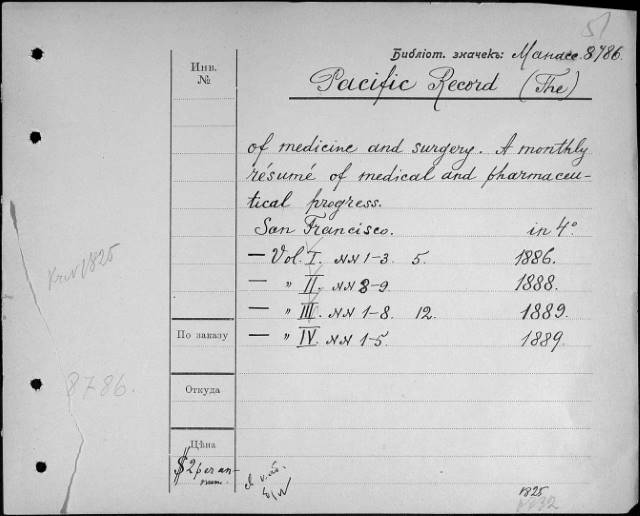 51
Библіот. значекъ: Манасс. 8786.
Инв.
№
Pacific Record (The)
of medicine and surgery. A monthly
résumé of medical and pharmaceu-
tical progress.
San Francisco. in 4°
— Vol. I. NN 1-3. 5. 1886.
— „ II. NN 8-9. 1888.
— „ III. NN 1-8. 12. 1889.
— „ IV. NN 1-5. 1889.
1825
По заказу
8786.
Откуда
Цѣна
$2 per an-
num.
1825